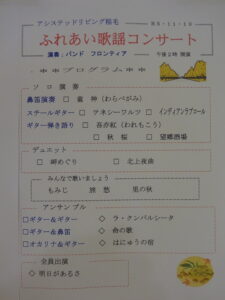 アシステッドリビング稲毛
H5・11・10
ふれあい歌謡コンサート
演奏：バンド フロンティア 午後2時 開演
－＊＊プログラム＊＊－
ソロ 演奏
鼻笛演奏 □ 童神（わらべがみ）
スチールギター □ アネシーワルツ □ インディアンラブコール
ギター弾き語り □ 吾亦紅（われもこう）
□ 秋桜 □ 望郷酒場
デュエット
□ 岬めぐり □ 北上夜曲
みんなで歌いましょう
もみじ 旅愁 里の秋
アンサンブル
□ギター＆ギター ◇ ラ・クンパルシータ
□ギター＆鼻笛 ◇ 命の歌
□オカリナ＆ギター ◇ はにゅうの宿
全員出演
◇ 明日があるさ